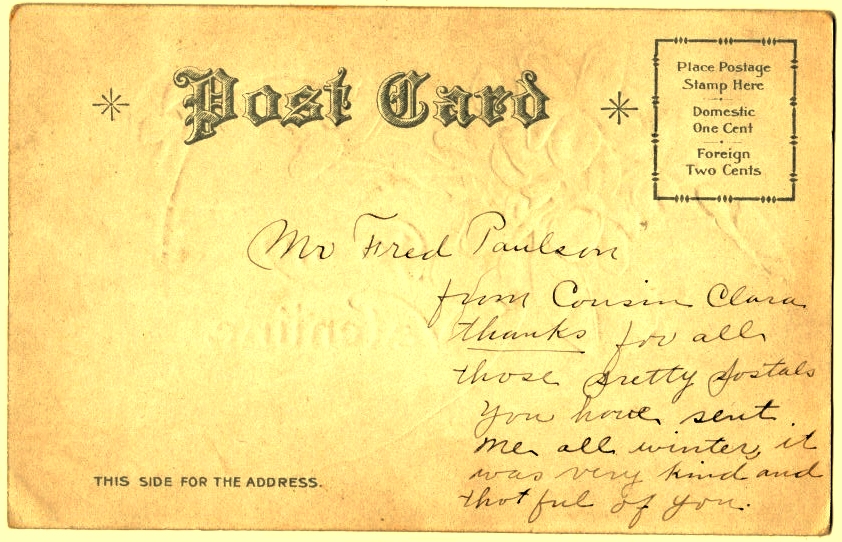 Post Card
Place Postage
Stamp Here
Domestic
One Cent
Foreign
Two Cents
Mr Fred Paulson
from Cousin Clara
thanks for all
those pretty postals
You have sent
me all winter, it
was very kind and
thotful of you.
THIS SIDE FOR THE ADDRESS.